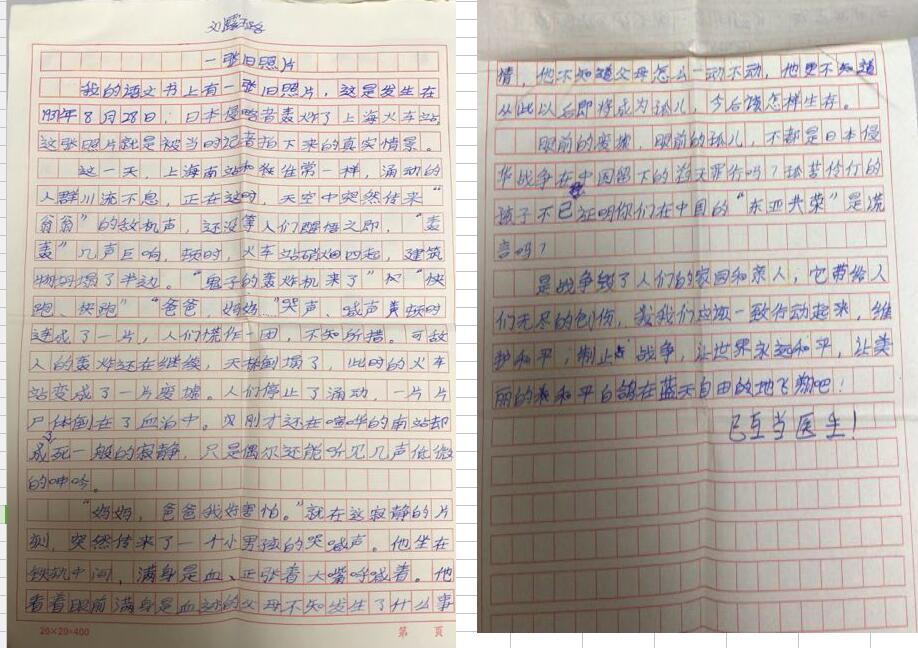 刘露路
一张旧照片
我的语文书上有一张旧照片，这是发生在
1937年8月28日：日本侵略者轰炸了上海火车站
这张照片就是被当时记者拍下来的真实情景。
这一天，上海南站和往常一样，涌动的
人群川流不息，正在这时，天空中突然传来“
翁翁”的敌机声，还没等人们醒悟之即，“轰
轰”几声巨响，顿时，火车站硝烟四起，建筑
物倒塌了半边。“鬼子的轰炸机来了”“快
跑、快跑”“爸爸，妈妈…”哭声、喊声顿时
连成了一片，人们慌作一团，不知所措。可敌
人的轰炸还在继续，天桥倒塌了，此时的火车
站变成了一片废墟。人们停止了涌动，一片片
尸体倒在了血泊中。刚才还在喧哗的南站却
成死一般的寂静，只是偶尔还能听见几声低微
的呻吟。
“妈妈，爸爸我好害怕。”就在这寂静的片
刻，突然传来了一个小男孩的哭喊声。他坐在
铁轨中间，满身是血、正张着大嘴呼喊着。他
看着眼前满身是血的父母不知发生了什么事
20×20=400
第 页
情，他不知道父母怎么一动不动，他更不知道
从此以后即将成为孤儿，今后该怎样生存。
眼前的废墟，眼前的孤儿，不都是日本侵
华战争在中国留下的滔天罪行吗？孤苦伶仃的
孩子不已证明你们在中国的“东亚共荣”是谎
言吗？
是战争毁了人们的家园和亲人，它带给人
们无尽的创伤，我们应该一致行动起来，维
护和平，制止战争，让世界永远和平，让美
丽的和平白鸽在蓝天自由的地飞翔吧！
已至当医生！